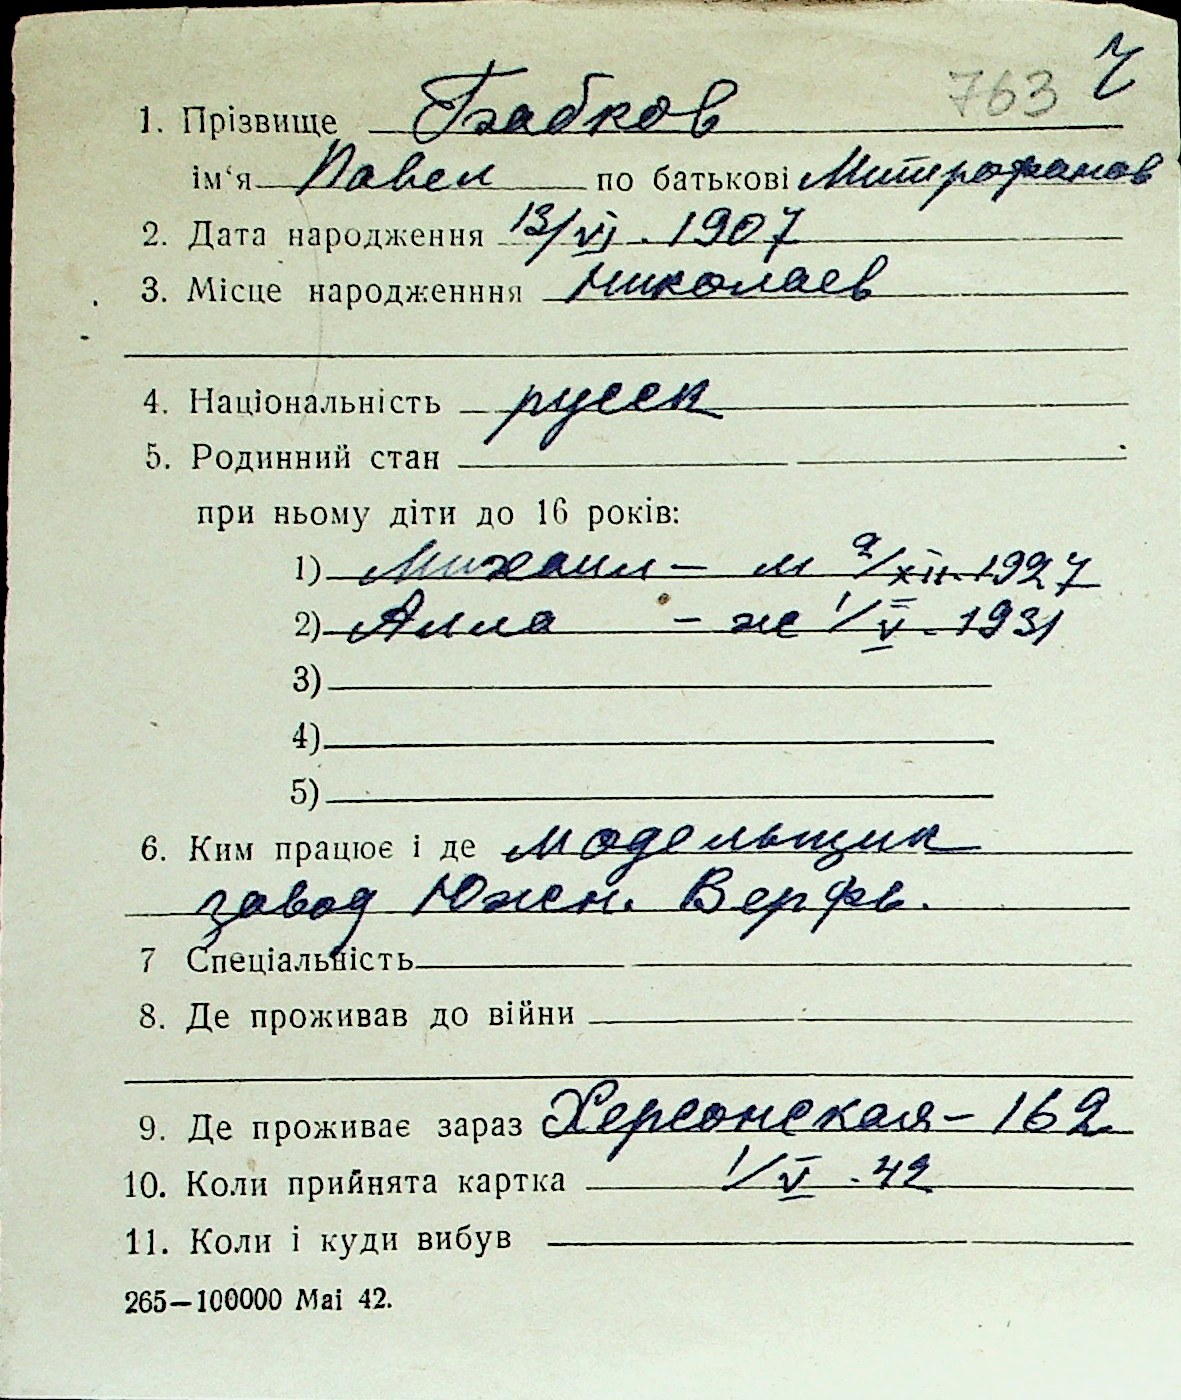 763 Ч
1. Прізвище Бабков
ім‘я Павел по батькові Митрофанов
2. Дата народження 13/VI. 1907
3. Місце народженння Николаев
4. Національність русск
5. Родинний стан
при ньому діти до 16 років:
1) Михаил – м 9/XII. 1927
2) Алла – ж 1/V. 1931
3)
4)
5)
6. Ким працює і де модельщик
завод Южн. Верфь.
7 Спеціальність
8. Де проживав до війни
9. Де проживає зараз Херсонская – 162
10. Коли прийнята картка 1/V. 42
11. Коли і куди вибув
265—100000 Mai 42.